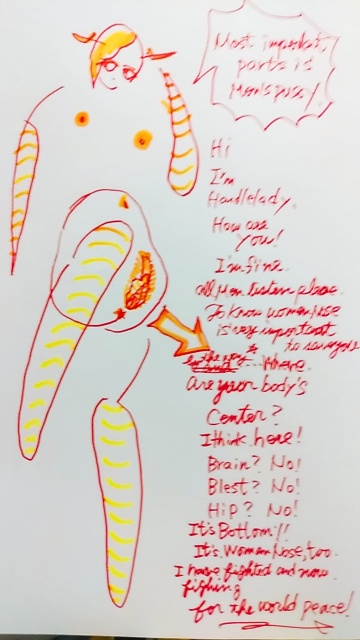 Most important
parts is
Mom's pussy.
Hi
I'm
Handlelady.
How are
you!
I'm fine.
all Men listen please.
To know women Nose
is very important
to
by the way
Where
are your body's
Center?
I think here!
Brain? No!
Blest? No!
Hip? No!
It's Bottom!!
It's Woman Nose, too.
I have fighted and now
fighing
for the world peace!